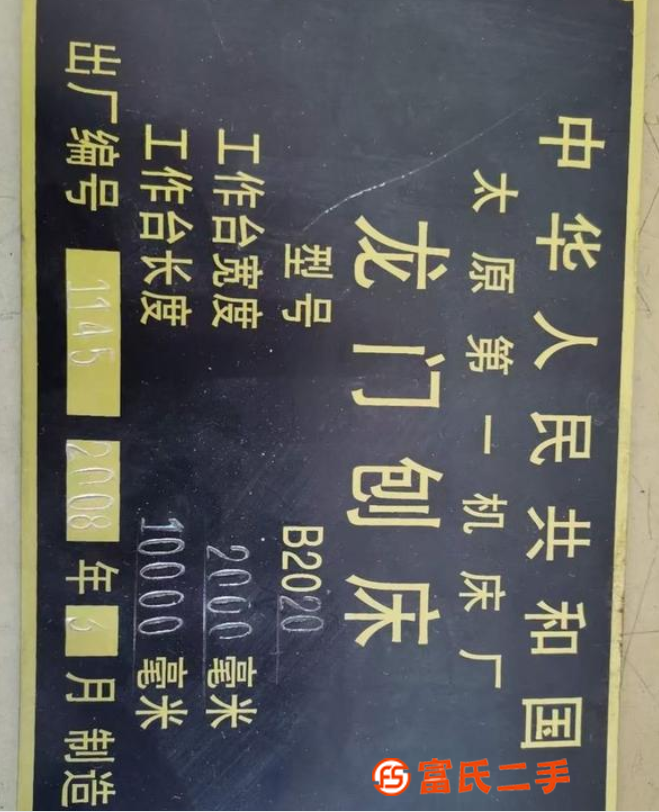 中华人民共和国
太原第一机床厂
龙门创床
型号 B2020
工作台宽度 2000 毫米
工作台长度 10000 毫米
出厂编号 1145 2008 年 6 月 制造
富氏二手